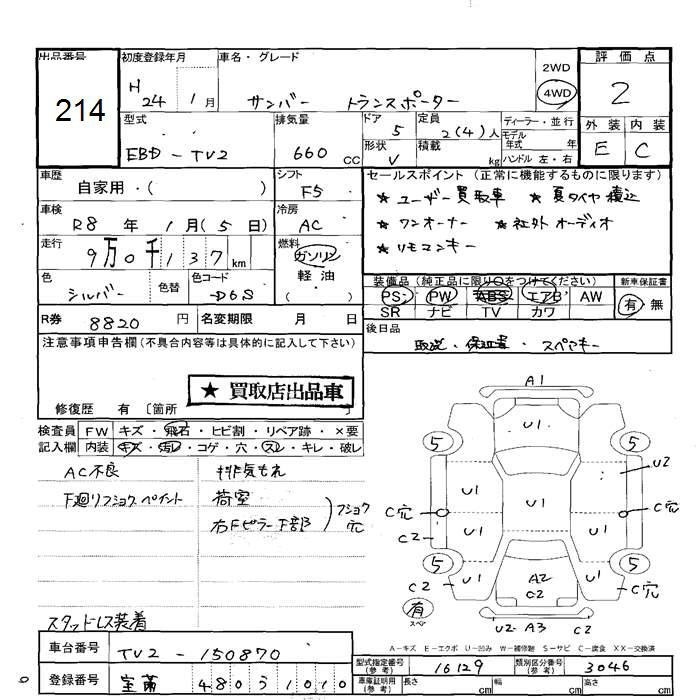 出品番号
214
初度登録年月
H 24 1月
車名・グレード
サンバー トランスポーター
2WD
4WD
評価点
2
外装 内装
E C
型式
EBD-TV2
排気量
660 CC
ドア
5
定員
2(4)人
形状
V
積載
kg
ディーラー・並行
モデル年式 年
ハンドル 左・右
車歴
自家用・( )
シフト
F5
セールスポイント(正常に機能するものに限ります)
★ ユーザー買取車 ★ 夏タイヤ積込
★ ワンオーナー ★ 社外オーディオ
★ リモコンキー
車検
R8年 1月(5日)
冷房
AC
走行
9万0千137km
燃料
ガソリン
軽油
( )
色
シルバー
色替
色コード
D6S
装備品(純正品に限り○をつけてください)
PS PW ABS エアB AW
SR ナビ TV カワ
新車保証書
有・無
R券
8820円
名変期限 月 日
後日品
取説・保証書・スペアキー
注意事項申告欄(不具合内容等は具体的に記入して下さい)
★ 買取店出品車
修復歴 有〔箇所 〕
検査員記入欄
FW キズ・飛石・ヒビ割・リペア跡・×要
内装 キズ・汚レ・コゲ・穴・スレ・キレ・破レ
AC不良
下廻りフショクペイント
排気もれ
荷室
右Fピラー下部
フショク穴
スタッドレス装着
A1
U1
5 5
U2
U1 U1 U1
C穴 C穴
U1 U1
C2
5 5
C2 U1 A2 C2 U1 C穴
有
スペア
U2 A3 C2
A-キズ E-エクボ U-凹み W-補修跡 S-サビ C-腐食 XX-交換済
車台番号
TV2-150870
登録番号
室蘭 480 う 1010
型式指定番号(参考)
16129
類別区分番号(参考)
3046
車庫証明用(参考)
長さ cm
幅 cm
高さ cm